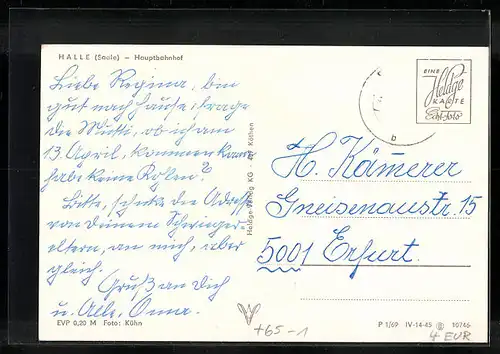 HALLE (Saale) – Hauptbahnhof
Liebe Regina, bin
gut nach Hause, frage
die Mutti, ob ich am
13. April, kommen kann
habe keine
Bitte, schicke die Adresse
von deinem Schwieger-
eltern, an mich, aber
gleich.
Gruß an Dich
u. Alle, Oma.
EVP 0,20 M Foto: Kühn
Heldge-Verlag KG Köthen
EINE
Heldge
KARTE
Echt-Foto
b
H. Kämerer
Gneisenaustr. 15
5001 Erfurt.
P 1/69 IV-14-45 10746
+65-1
4 EUR